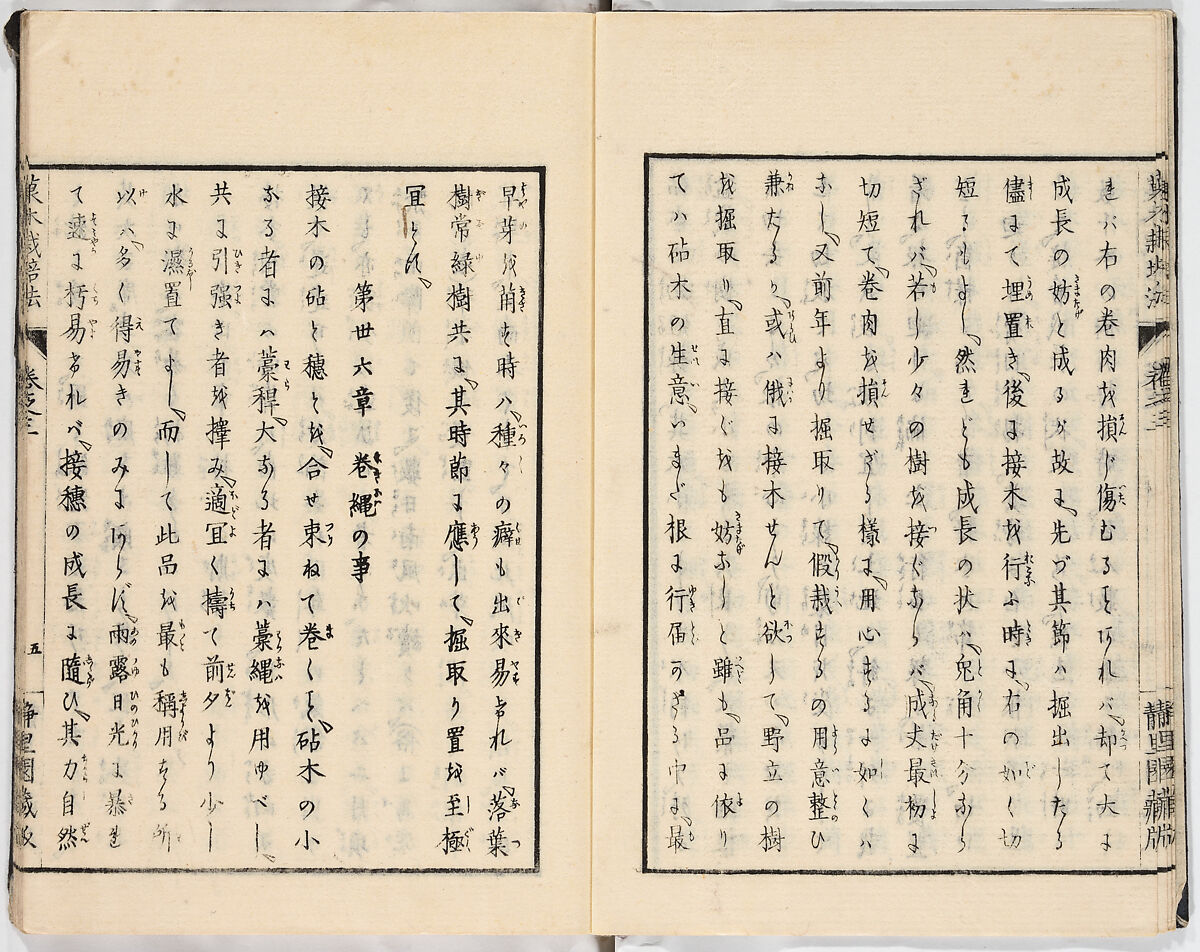 菓木栽培法 卷之三 靜里園藏版
まバ右の卷肉を損じ傷むることあれバ却て大に
成長の妨と成るが故に先づ其節ハ掘出したる
儘にて埋置き後に接木を行ふ時に右の如く切
短るもよし然れども成長の狀ハ兎角十分なら
ざれバ若し少々の樹を接ぐならバ成丈最初に
切短て卷肉を損せざる樣に用心するに如くハ
なし又前年より掘取りて假栽するの用意整ひ
兼たるか或ハ俄に接木せんと欲して野立の樹
を掘取り直に接ぐをも妨なしと雖も品に依り
てハ砧木の生意いまだ根に行届かざる中に最
早芽を萠す時ハ種々の癖も出來易けれバ落葉
樹常綠樹共に其時節に應して掘取り置を至極
冝とす
第廿六章 卷繩の事
接木の砧と穗とを合せ束ねて卷くこと砧木の小
なる者にハ藁稈大なる者にハ藁繩を用ゆべし
共に引强き者を擇み適冝く擣て前夕より少し
水に濕置てよし而して此品を最も稱用する所
以ハ多く得易きのみにあらず雨露日光に暴れ
て速に朽易けれバ接穗の成長に隨ひ其力自然
菓木栽培法 卷之三 五 靜里園藏版